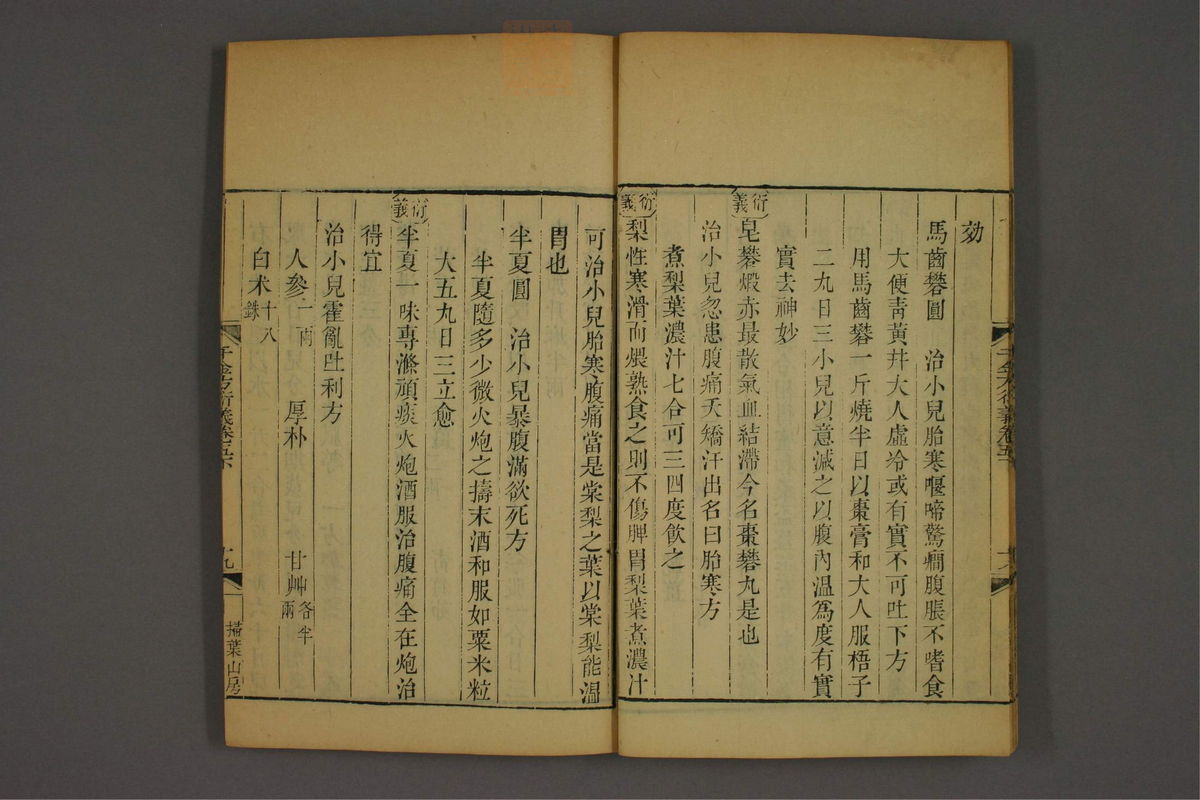 効
馬齒礬圓 治小兒胎寒偃啼驚癇腹脹不嗜食
大便靑黃并大人虛冷或有實不可吐下方
用馬齒礬一斤燒半日以棗膏和大人服梧子
二九日三小兒以意減之以腹內温爲度有實
實去神妙
衍義 皂礬煅赤最散氣血結滯今名棗礬丸是也
治小兒忽患腹痛夭矯汗出名曰胎寒方
煮梨葉濃汁七合可三四度飮之
衍義 梨性寒滑而煨熟食之則不傷脾胃梨葉煮濃汁
可治小兒胎寒腹痛當是棠梨之葉以棠梨能温
胃也
半夏圓 治小兒暴腹滿欲死方
半夏隨多少微火炮之擣末酒和服如粟米粒
大五九日三立愈
衍義 半夏一味專滌頑痰火炮酒服治腹痛全在炮治
得宜
治小兒霍亂吐利方
人參一兩 厚朴 甘艸各半兩
白术十八銖
千金方衍義卷五下
九
掃葉山房